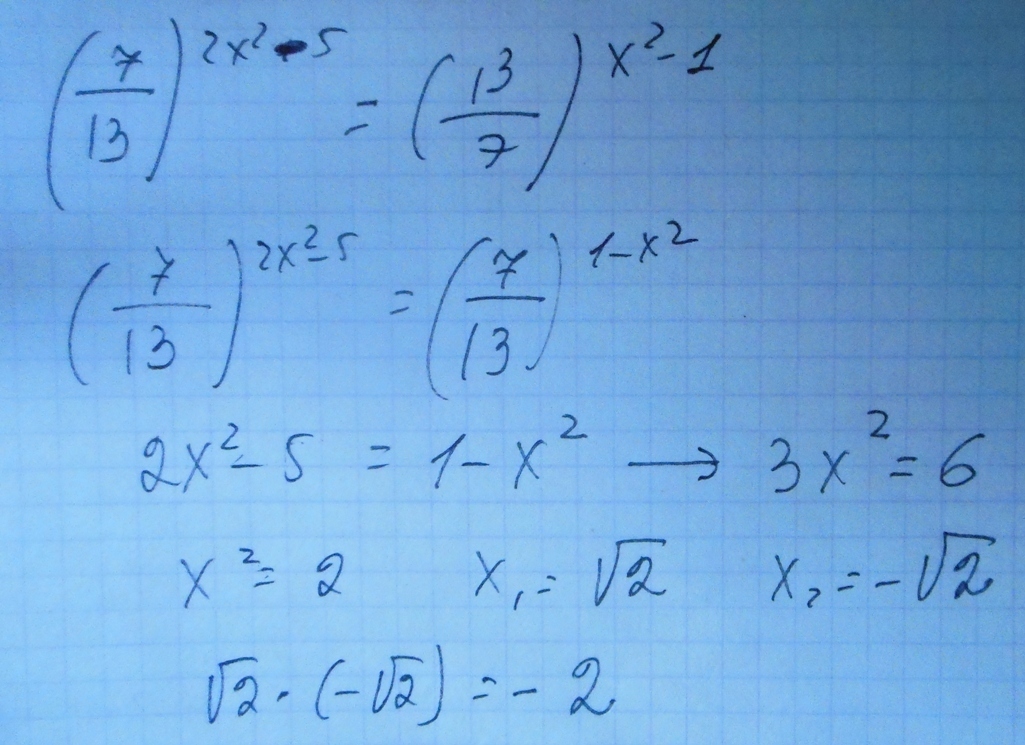 (7/13)^(2x²-5) = (13/7)^(x²-1)
(7/13)^(2x²-5) = (7/13)^(1-x²)
2x²-5 = 1-x² → 3x²=6
x²=2 x₁=√2 x₂=-√2
√2·(-√2)=-2